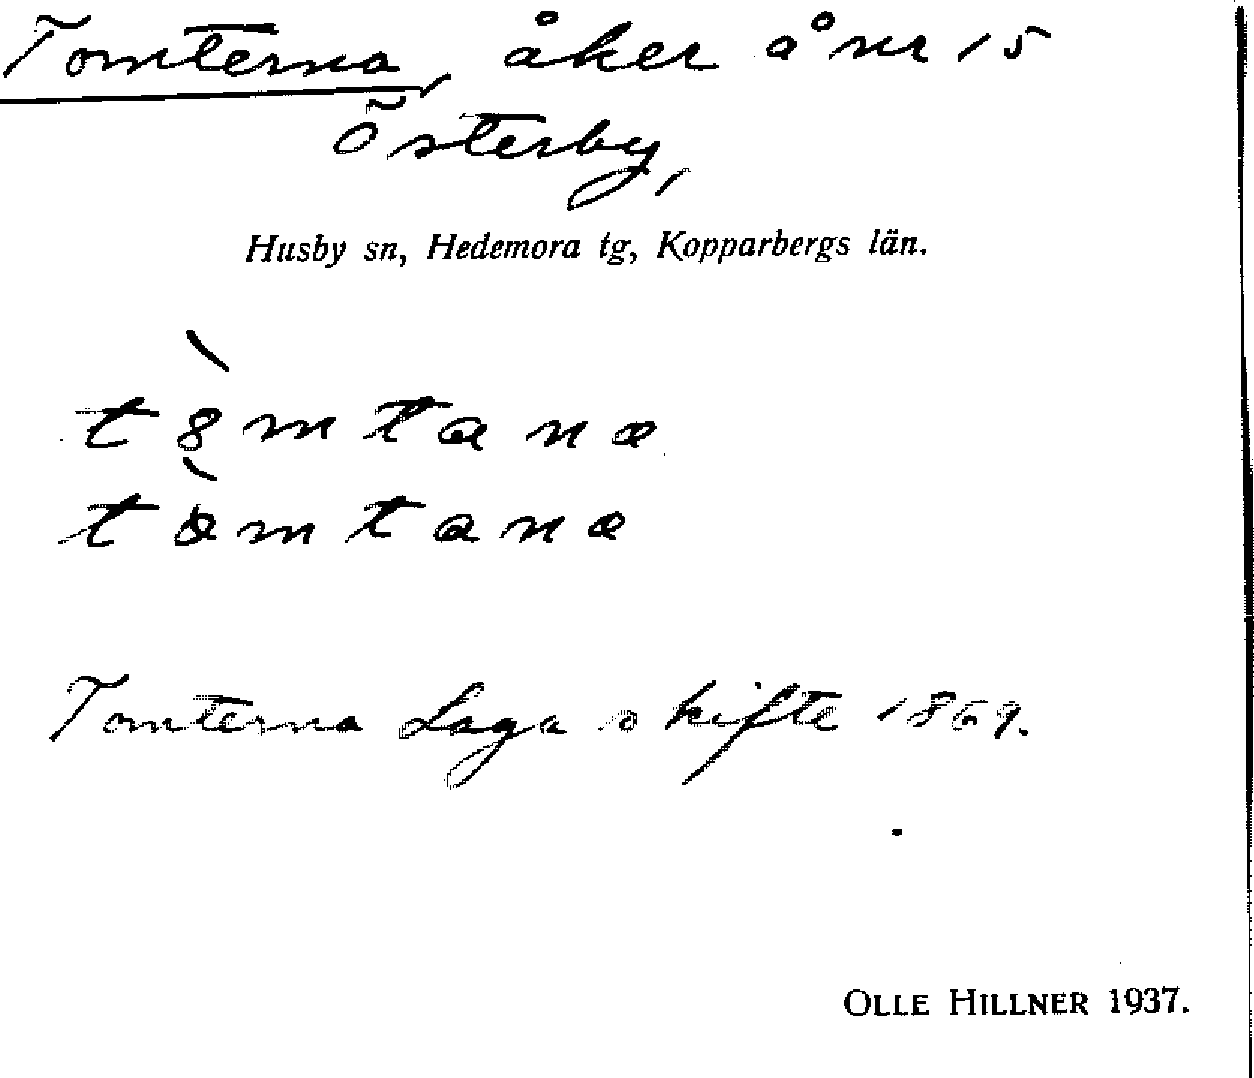 Tomterna, åker å nr 15
Österby,
Husby sn, Hedemora tg, Kopparbergs län.
Tomterna Laga skifte 1869.
OLLE HILLNER 1937.